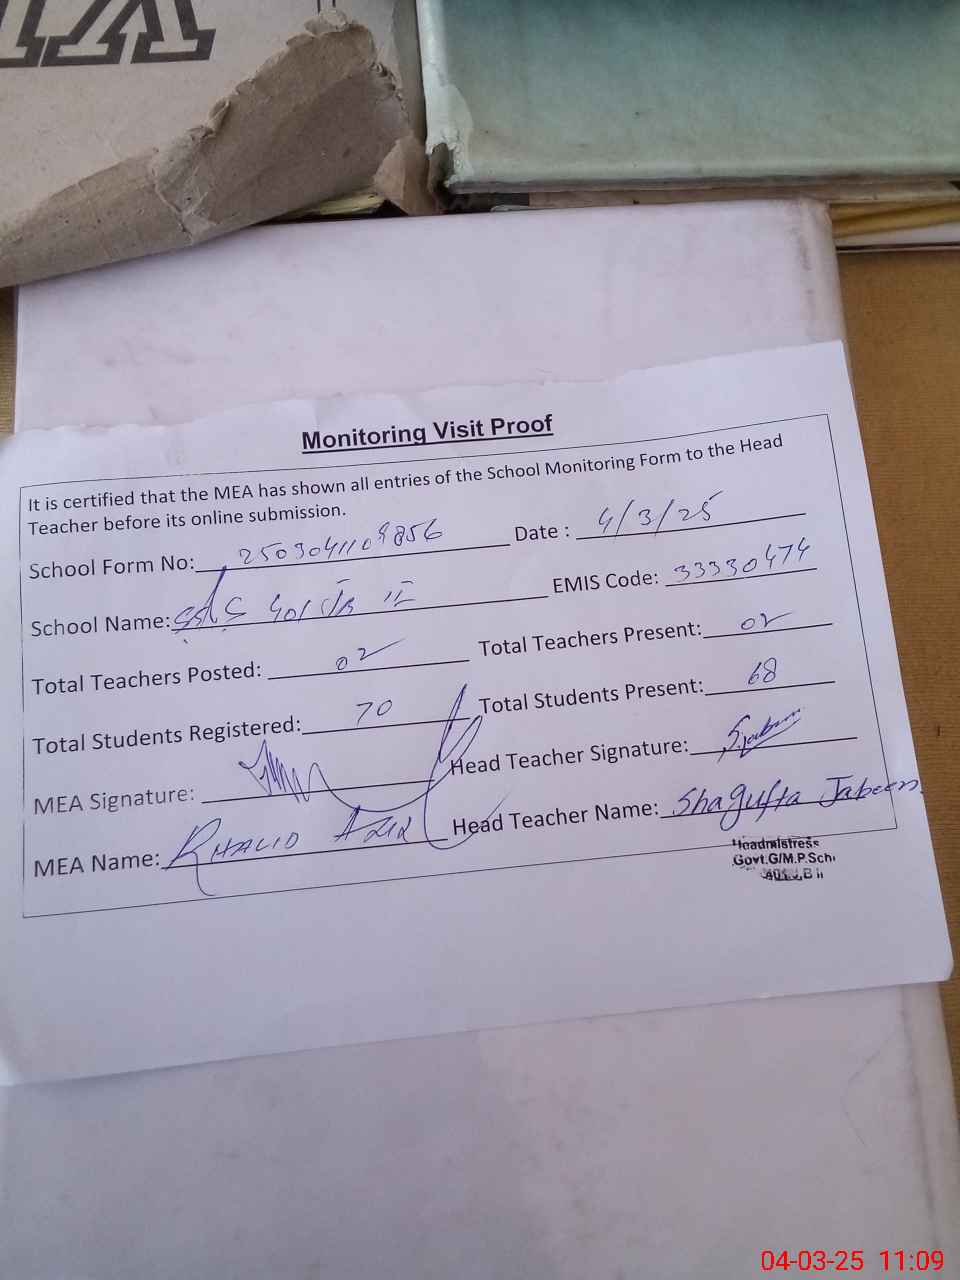 Monitoring Visit Proof
It is certified that the MEA has shown all entries of the School Monitoring Form to the Head
Teacher before its online submission.
School Form No: 2503041109856 Date : 4/3/25
School Name: EMIS Code: 33330474
Total Teachers Posted: 02 Total Teachers Present: 02
Total Students Registered: 70 Total Students Present: 68
MEA Signature: Head Teacher Signature: S.Jabeen
MEA Name: KHALID AZIZ Head Teacher Name: Shagufta Jabeen.
Headmistress
Govt.G/M.P.Sch
04-03-25 11:09